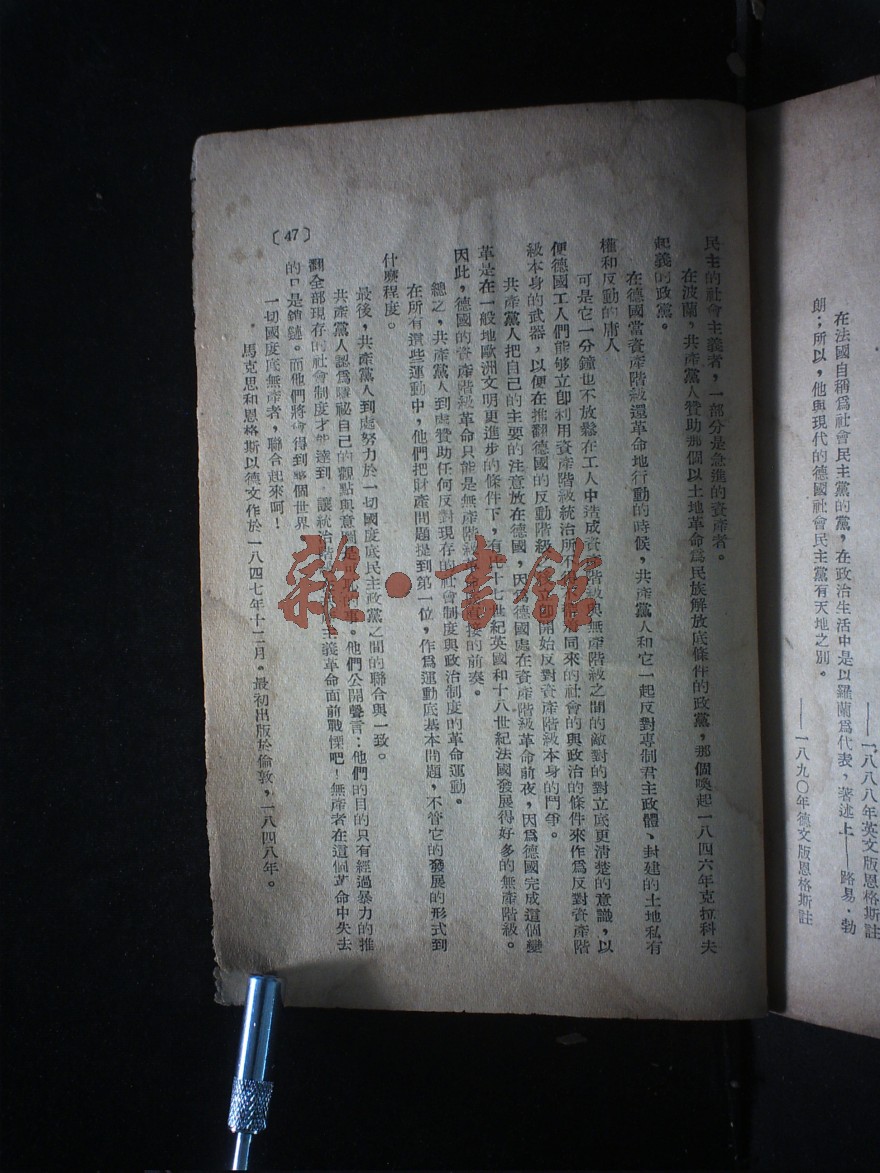 在法國自稱爲社會民主黨的黨，在政治生活中是以羅蘭爲代表，著述上——路易·勃
——一八八八年英文版恩格斯註
朗；所以，他與現代的德國社會民主黨有天地之別。
——一八九〇年德文版恩格斯註
民主的社會主義者，一部分是急進的資產者。
在波蘭，共產黨人贊助那個以土地革命爲民族解放底條件的政黨，那個喚起一八四六年克拉科夫
起義的政黨。
在德國當資產階級還革命地行動的時候，共產黨人和它一起反對專制君主政體、封建的土地私有
權和反動的庸人
可是它一分鐘也不放鬆在工人中造成資產階級與無產階級之間的敵對的對立底更清楚的意識，以
便德國工人們能够立卽利用資產階級統治所不得 同來的社會的與政治的條件來作爲反對資產階
級本身的武器，以便在推翻德國的反動階級 立卽開始反對資產階級本身的鬥爭。
共產黨人把自己的主要的注意放在德國，因爲德國處在資產階級革命前夜，因爲德國完成這個變
革是在一般地歐洲文明更進步的條件下，有 十七世紀英國和十八世紀法國發展得好多的無產階級。
因此，德國的資產階級革命只能是無產階級革命直接的前奏。
總之，共產黨人到處贊助任何反對現存的社會制度與政治制度的革命運動。
在所有這些運動中，他們把財產問題提到第一位，作爲運動底基本問題，不管它的發展的形式到
什麼程度。
最後，共產黨人到處努力於一切國度底民主政黨之間的聯合與一致。
共產黨人認爲隱祕自己的觀點與意圖是 事。他們公開聲言：他們的目的只有經過暴力的推
翻全部現存的社會制度才能達到 讓統治階 主義革命面前戰慄吧！無產者在這個革命中失去
的只是鎖鏈。而他們將會得到整個世界
一切國度底無產者，聯合起來呵！
馬克思和恩格斯以德文作於一八四七年十二月。最初出版於倫敦，一八四八年。
〔47〕
雜·書館